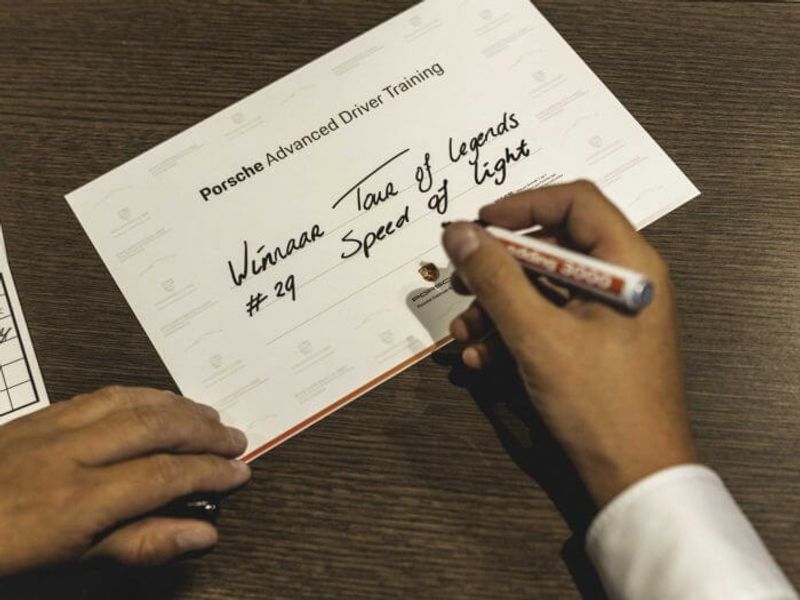 Porsche Advanced Driver Training
Winnaar Tour of Legends
#29 Speed of light
PORSC
edding 3000